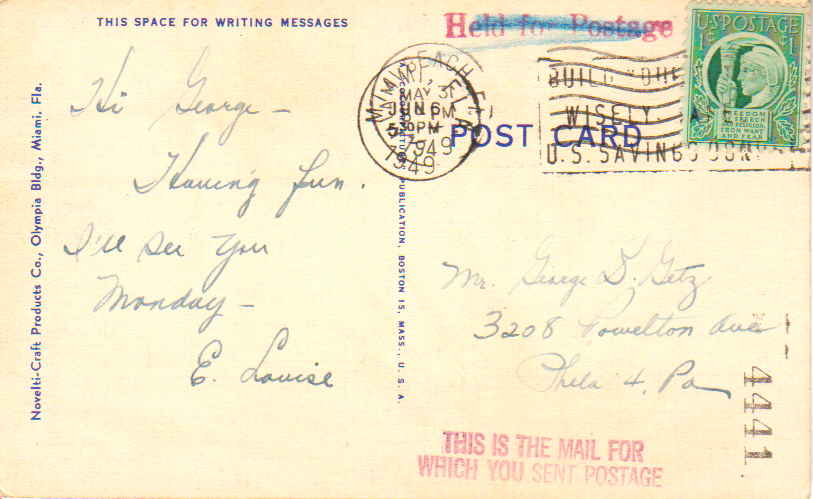 THIS SPACE FOR WRITING MESSAGES
Held for Postage
U.S. POSTAGE
1¢ 1¢
FREEDOM
OF SPEECH
AND RELIGION,
FROM WANT
AND FEAR
MIAMI BEACH, FLA.
MAY 31
JUN 6
PM
1949
1949
WISELY
U.S. SAVINGS BONDS
POST CARD
Hi George -
Having fun.
I'll see you
Monday -
E. Louise
Mr. George D. Getz
3208 Powelton Ave
Phila 4, Pa
4441
THIS IS THE MAIL FOR
WHICH YOU SENT POSTAGE
Novelti-Craft Products Co., Olympia Bldg., Miami, Fla.
PUBLICATION, BOSTON 15, MASS., U. S. A.